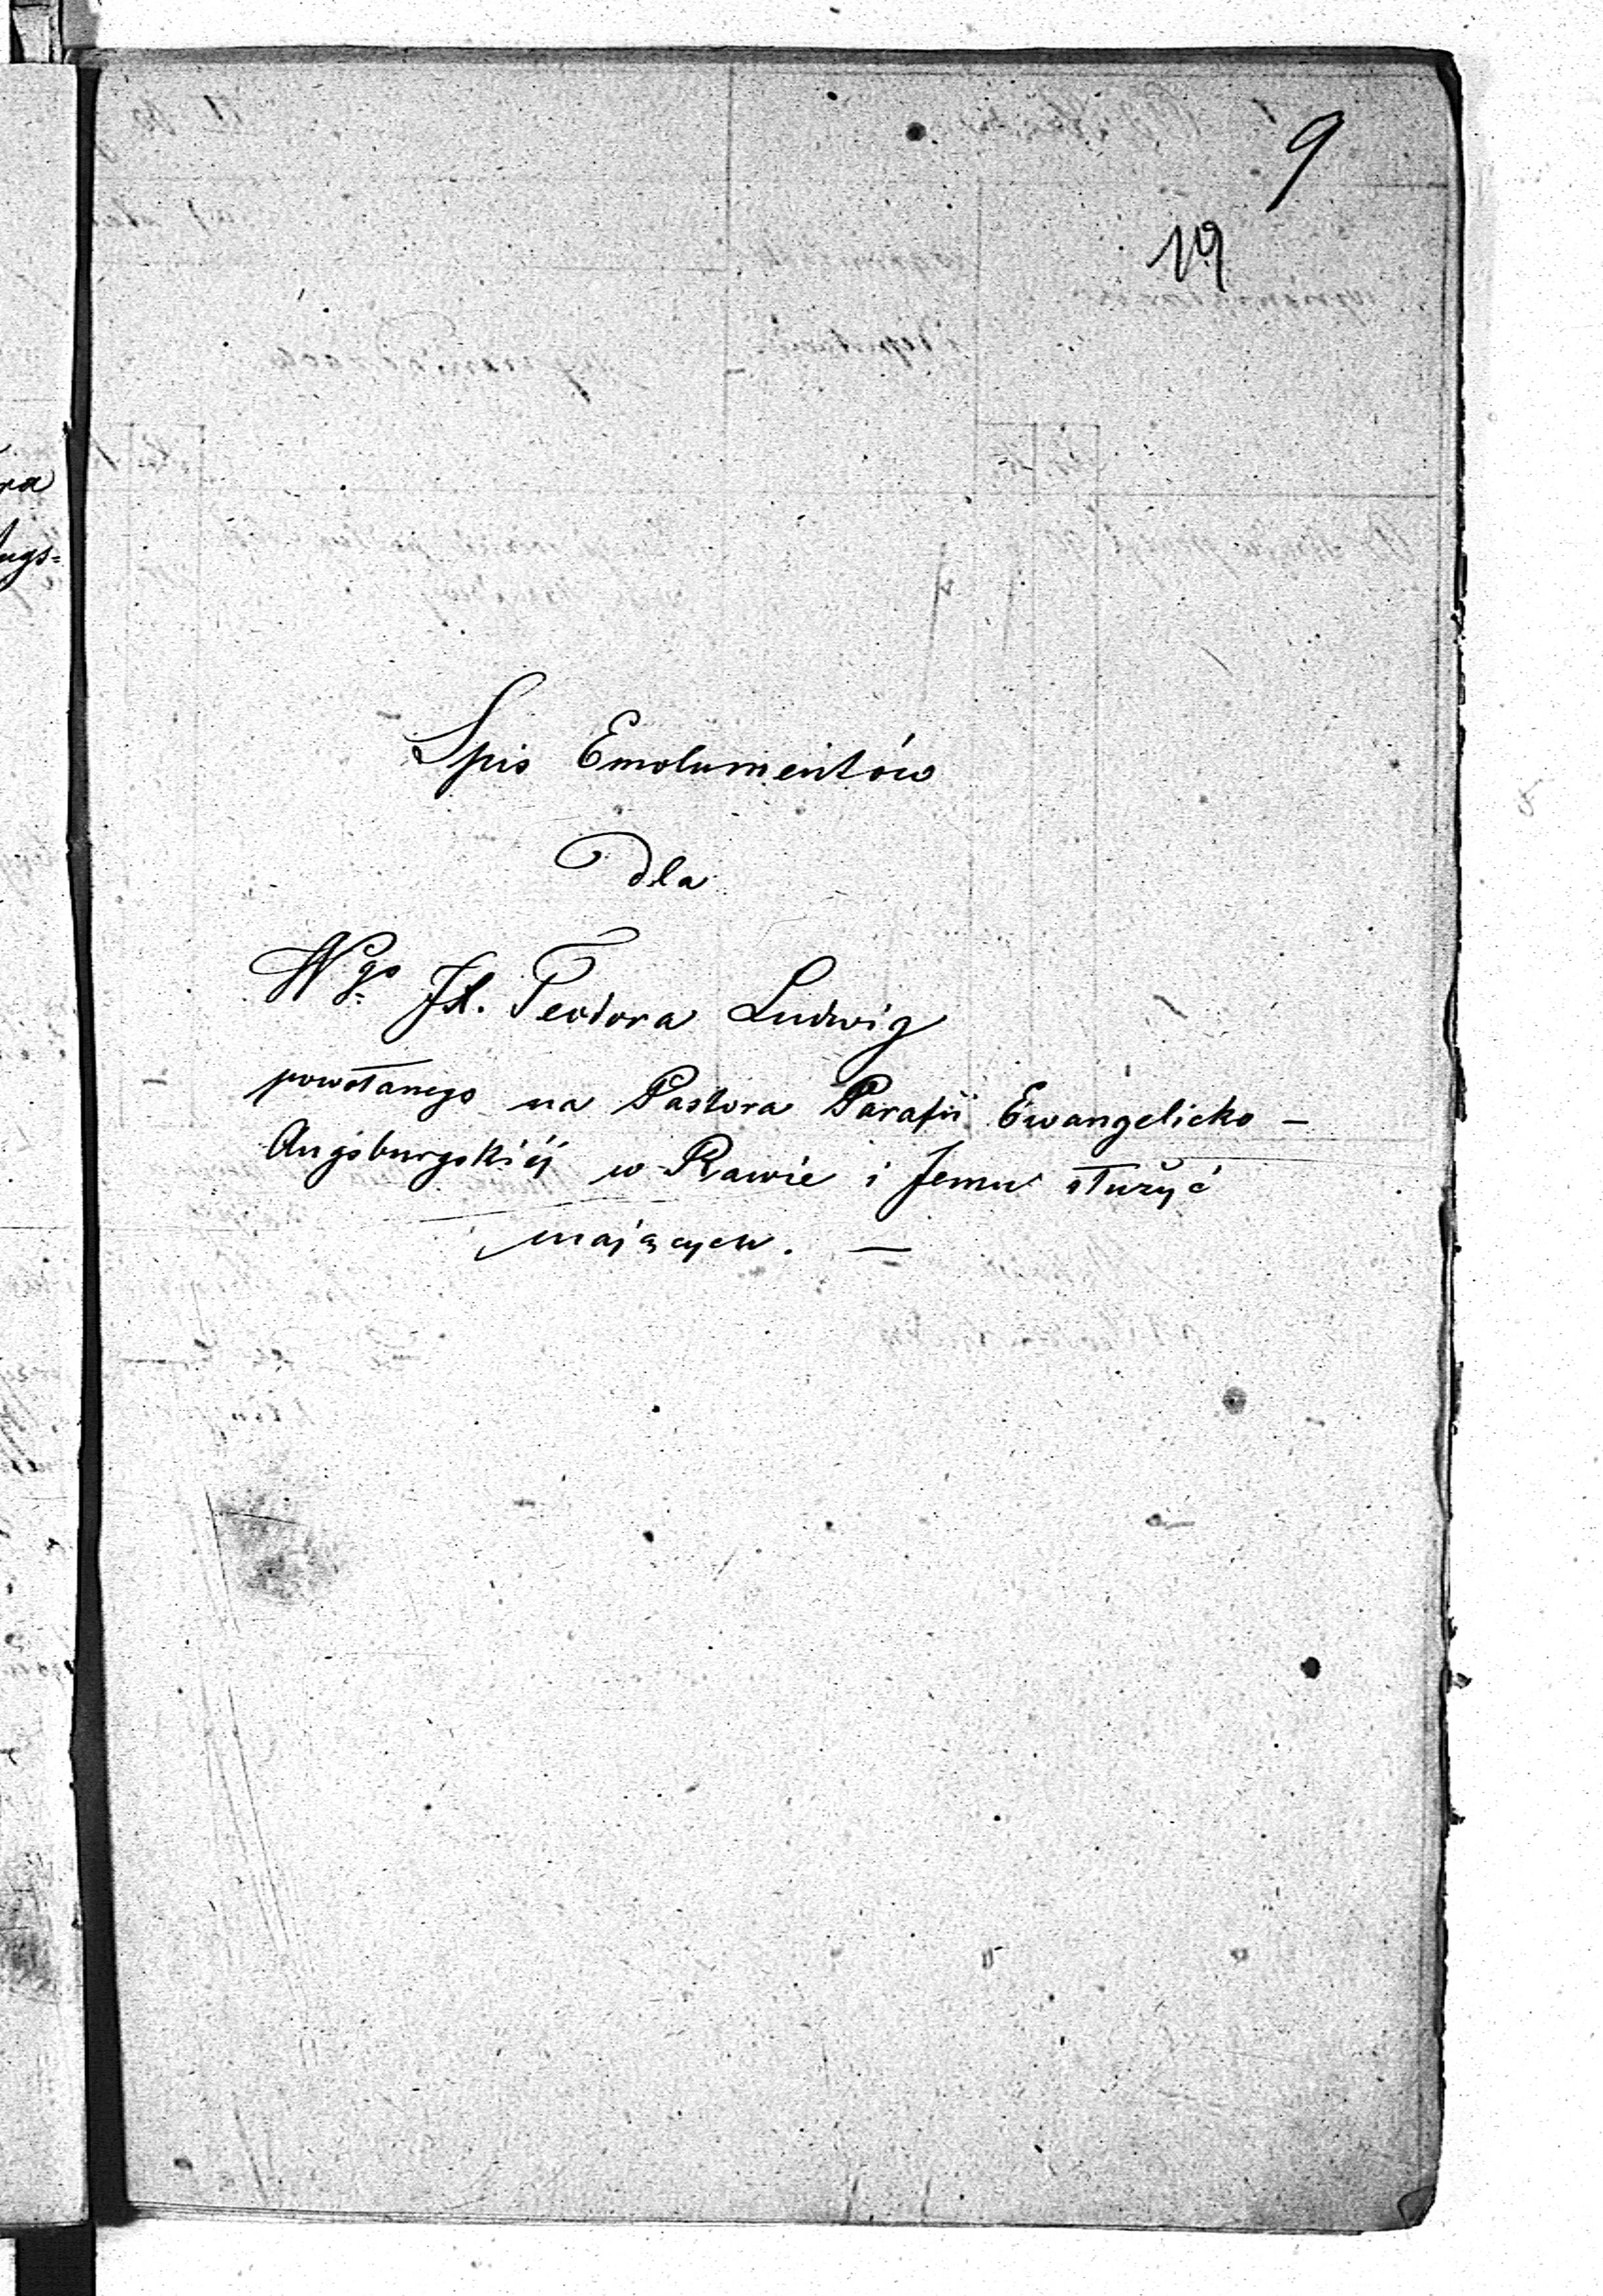 9
19
Spis Emolumentów
dla
Wgo Teodora Ludwig
powołanego na Pastora Parafii Ewangelicko –
Augsburgskiéj w Rawie i Jemu służyć
mających. —